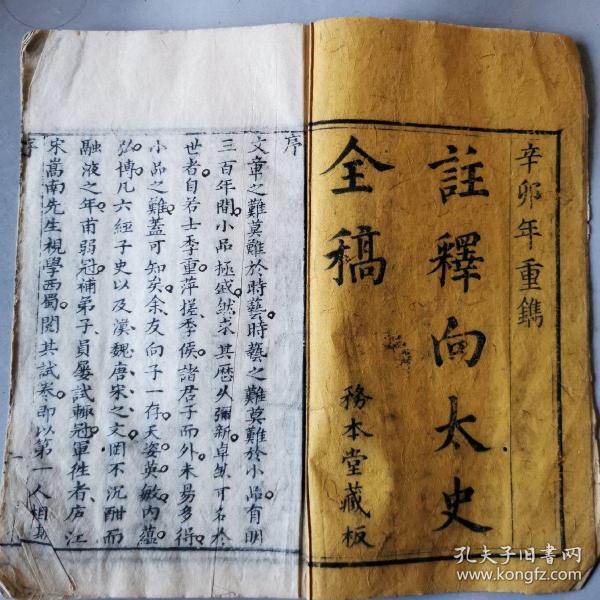 辛卯年重鐫
註釋向太史
全稿
務本堂藏板
序
文章之難莫難於時藝時藝之難莫難於小品有明
三百年間小品極盛然求其歷久彌新卓然可名於
世者自若士季重萍槎季侯諸君子而外未易多得
小品之難蓋可知矣余友向子一存天姿英敏内蘊
弘博凡六經子史以及漢魏唐宋之文罔不沉酣而
融液之年甫弱冠補弟子員屢試輒冠軍徃者庐江
宋嵩南先生視學西蜀閱其試卷即以第一人相期
序
孔夫子旧书网
www.kongfz.com